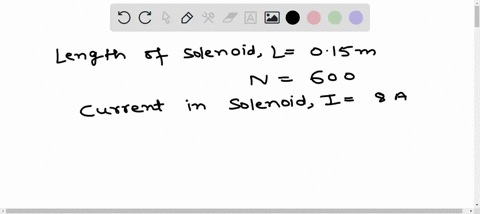 Length of solenoid, L = 0.15m
N = 600
Current in solenoid, I = 8 A